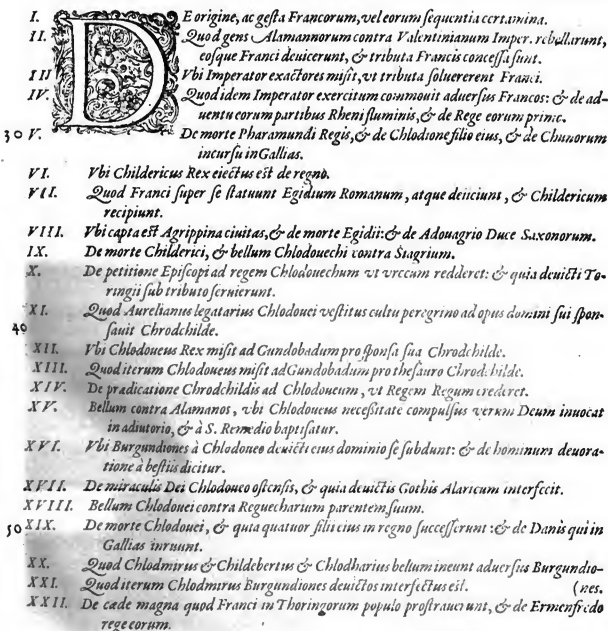 I. DE origine, ac gesta Francorum, vel eorum sequentia certamina.
II. Quod gens Alamannorum contra Valentinianum Imper. rebellarunt,
eosque Franci deuicerunt, & tributa Francis concessa sunt.
III Vbi Imperator exactores misit, vt tributa soluererent Franci.
IV. Quod idem Imperator exercitum commouit aduersus Francos: & de ad-
uentu eorum partibus Rheni fluminis, & de Rege eorum primo.
30 V. De morte Pharamundi Regis, & de Chlodione filio eius, & de Chunorum
incursu in Gallias.
VI. Vbi Childericus Rex eiectus est de regno.
VII. Quod Franci super se statuunt Egidium Romanum, atque deiiciunt, & Childericum
recipiunt.
VIII. Vbi capta est Agrippina ciuitas, & de morte Egidii: & de Adouagrio Duce Saxonorum.
IX. De morte Childerici, & bellum Chlodouechi contra Siagrium.
X. De petitione Episcopi ad regem Chlodouechum vt vrceum redderet: & quia deuicti To-
ringii sub tributo seruierunt.
XI. Quod Aurelianus legatarius Chlodouei vestitus cultu peregrino ad opus domini sui spon-
40 sauit Chrodchilde.
XII. Vbi Chlodoueus Rex misit ad Gundobadum pro sponsa sua Chrodchilde.
XIII. Quod iterum Chlodoueus misit ad Gundobadum pro thesauro Chrodchilde.
XIV. De prædicatione Chrodchildis ad Chlodoueum, vt Regem Regum crederet.
XV. Bellum contra Alamanos, vbi Chlodoueus necessitate compulsus verum Deum inuocat
in adiutorio, & à S. Remedio baptisatur.
XVI. Vbi Burgundiones à Chlodoueo deuicti eius dominio se subdunt: & de hominum deuora-
tione à bestiis dicitur.
XVII. De miraculis Dei Chlodoueo ostensis, & quia deuictis Gothis Alaricum interfecit.
XVIII. Bellum Chlodouei contra Reguecharium parentem suum.
50 XIX. De morte Chlodouei, & quia quatuor filii eius in regno successerunt: & de Danis qui in
Gallias inruunt.
XX. Quod Chlodmirus & Childebertus & Chlodharius bellum ineunt aduersus Burgundio-
XXI. Quod iterum Chlodmirus Burgundiones deuictos interfectus est. (nes.
XXII. De cæde magna quod Franci in Thoringorum populo prostrauerunt, & de Ermenfredo
rege eorum.